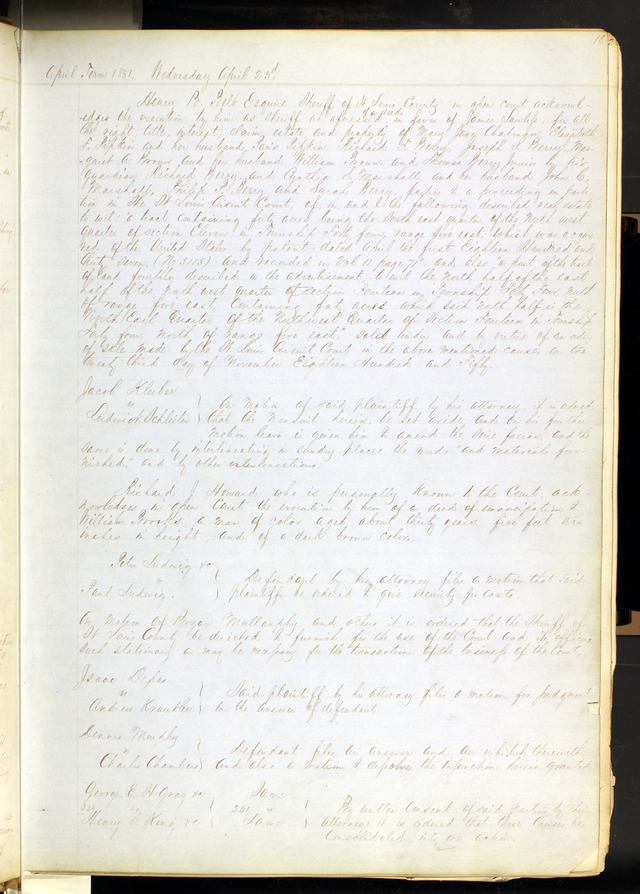 April Term 1851. Wednesday April 23d
Henry B. Belt Esquire Sheriff of St Louis County in open court acknowl-
edges the execution by him as Sheriff as aforesaid in favor of James for all
the right, title, interest, claim, estate and property of Mary May Chapman, Elizabeth
F. Pipkin and her husband Pipkin Richard F. Berry, Joseph S Berry, Mar-
garet A Brown and her husband William Brown and Thomas Berry minor by his
Guardian Richard Berry and Cynthia S Marshall and her husband John C.
Marshall, Philip P. Berry and Sarah Berry, parties to a proceeding in parti-
tion in the St Louis Circuit Court, of in and to the following described real estate
to wit: a tract containing forty acres being the North east quarter of the North west
quarter of section Eleven in Township Forty four, range five east, which was
of the United States by patent dated April the first Eighteen Hundred and
thirty seven (No 5115) and recorded in Vol 11 page and also "a part of the tract
of land fourthly described in the advertisement, to wit the north half of the east
half of the north west quarter of section Fourteen in Township Forty Four north
of range five east Containing forty acres, which said north half is the
North East Quarter of the Northwest Quarter of section Fourteen in Township
Forty four north of range five east, sold under and by virtue of an order
of sale made by the St Louis Circuit Court in the above mentioned cause, on the
twenty third day of November Eighteen Hundred and Fifty.
Jacob Kleiber
vs
Ludwick Schleiter } On motion of said plaintiff, by his attorney it is ordered
that the nonsuit herein be set aside, and on his further
motion leave is given him to amend the scire facias, and the
same is done by interlineating in sundry places the words "and materials fur-
nished," and by other interlineations.
Richard J Howard, who is personally known to the Court, ack-
nowledges in open Court the execution by him of a deed of emancipation to
William Brooks, a man of color, aged about thirty years, five feet six
inches in height, and of a dark brown color.
Peter Ludwig &c
vs
Paul Ludwig. } Defendant by his attorney files a motion that said
plaintiffs be ordered to give security for costs
On motion of Bryan Mullanphy and others it is ordered that the Sheriff of
St Louis County be directed to furnish for the use of the Court and its officers
such stationery as may be necessary for the transaction of the business of the Court.
Isaac
vs
Andrew } Said plaintiff by his attorney files a motion for judgment
on the answer of defendant
Dennis Murphy
vs
Charles Chambers } Defendant files an answer and an exhibit therewith,
and also a motion to dissolve the injunction herein granted
George E H Gray &c } Same
vs 241 vs
Henry King &c } Same } By written Consent of said parties by their
attorneys it is ordered that these Causes be
Consolidated into one action.